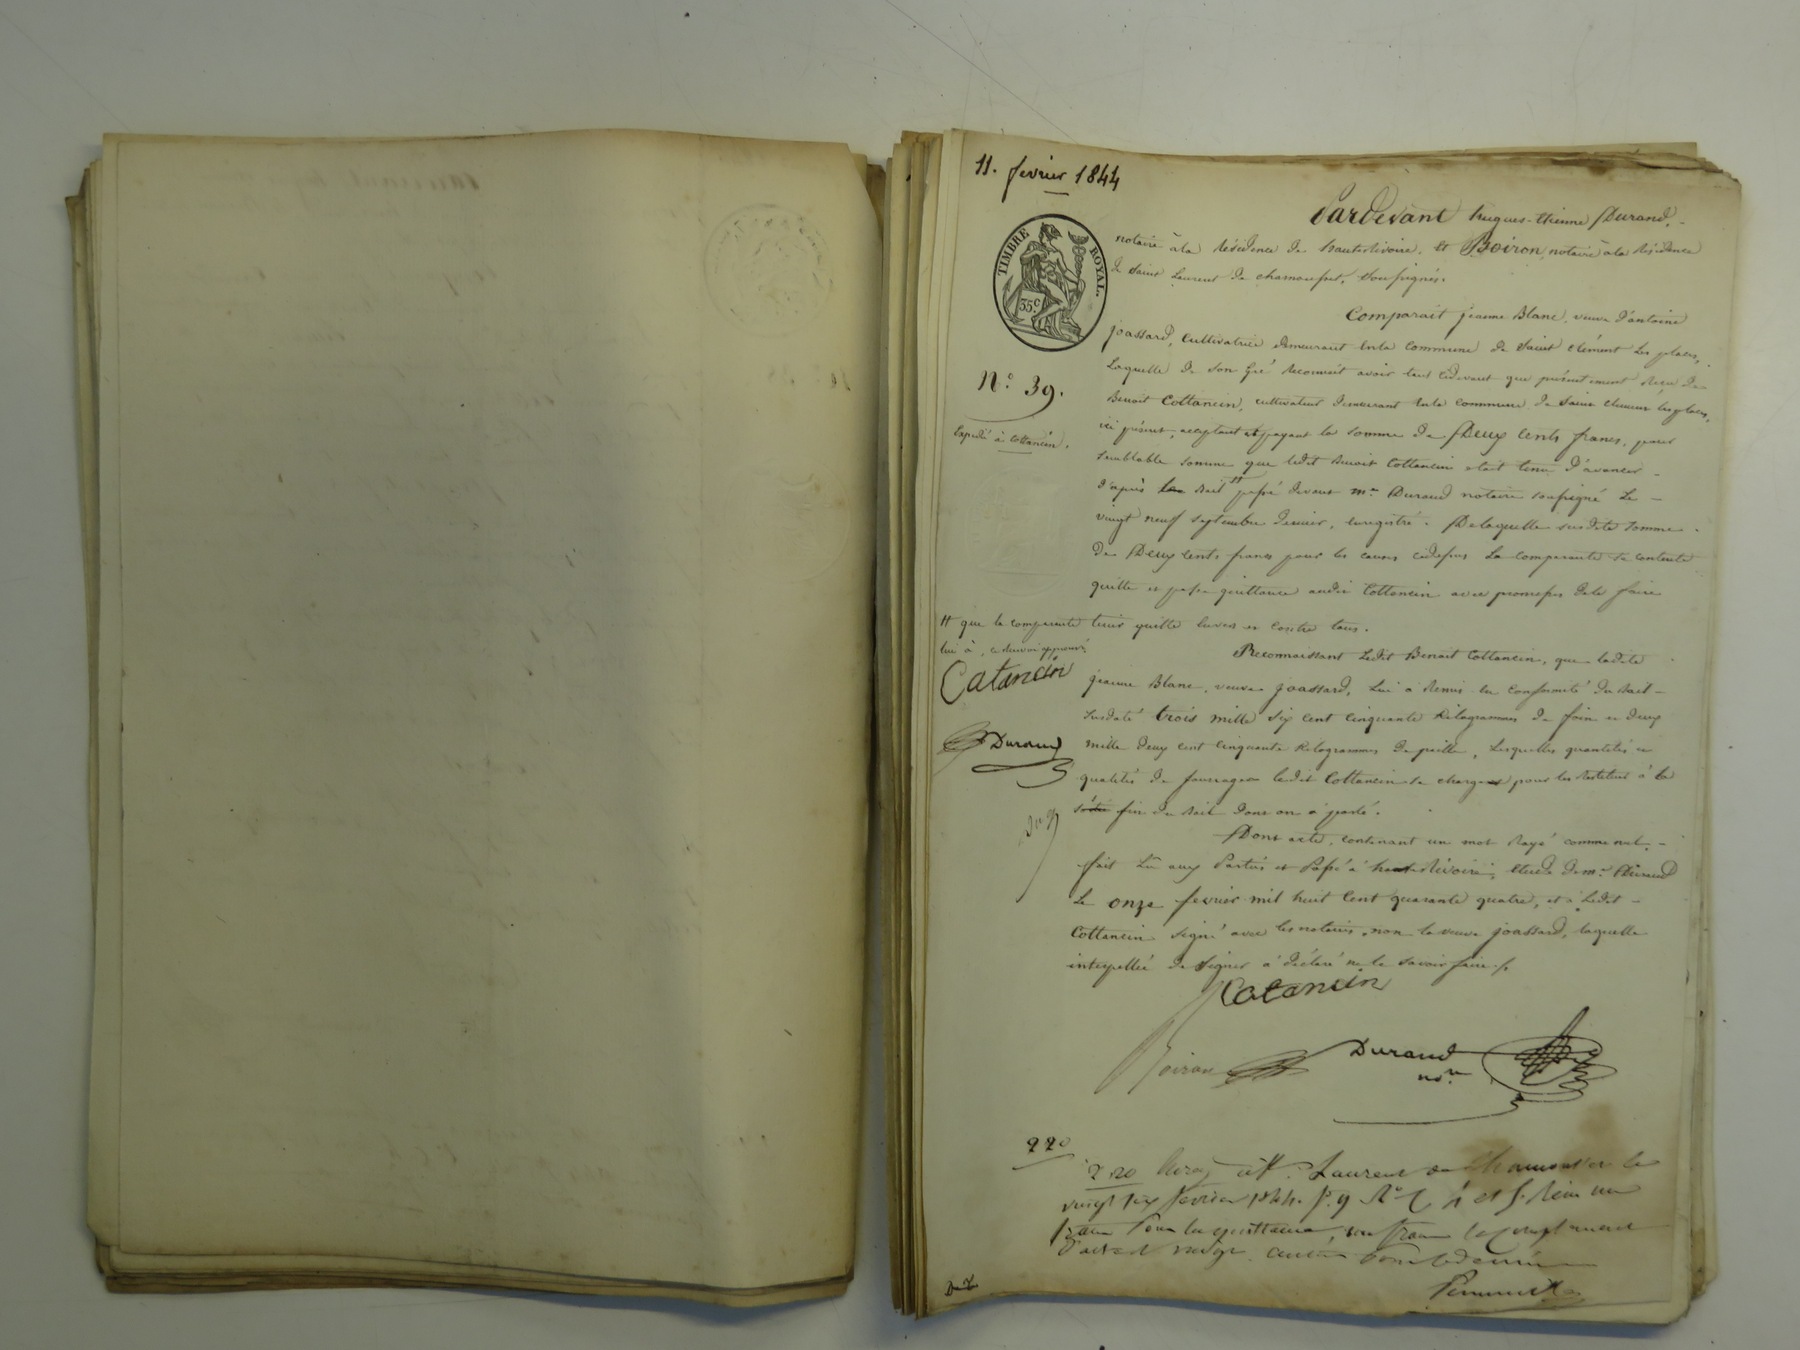 11. fevrier 1844
Pardevant hugues-etienne Durand,
notaire à la Résidence de hauterivoire, et Boiron, notaire à la Résidence
de Saint Laurent de chamousset, soussignés.
TIMBRE ROYAL.
35 c
Comparait jeanne Blanc, veuve d'antoine
joassard, cultivatrice demeurant en la commune de Saint clément les places,
N.° 39.
Laquelle de son gré reconnait avoir tant cidevant que présentement reçu de
Benoit Cottancin, cultivateur demeurant en la commune de Saint clément les places,
Expédié à Cottancin.
ici présent, acceptant et payant la somme de Deux cents francs, pour
semblable somme que ledit Benoit Cottancin était tenu d'avancer
d'après bail passé devant me. Durand notaire soussigné le
vingt neuf septembre dernier, enregistré. De laquelle susdite somme
de Deux cents francs pour les causes cidessus la comparante se contente
quitte et passe quittance audit Cottancin avec promesse de le faire
tenir quitte envers et contre tous.
# que la comparante
lui a, ce renvoi approuvé
Catancin
Durand
Reconnaissant Ledit Benoit Cottancin, que ladite
jeanne Blanc, veuve joassard, Lui a Remis en conformité du Bail
susdaté trois mille six cent cinquante Kilogrammes de foin et deux
mille deux cent cinquante Kilogrammes de paille, Lesquelles quantités et
qualités de fourrages ledit Cottancin se charge pour les restituer à la
fin du Bail dont on a parlé.
Dont acte, contenant un mot Rayé comme nul,
fait Lu aux Parties et Passé à hauterivoire, étude de me. Durand
Le onze fevrier mil huit cent quarante quatre, et a Ledit
Cottancin signé avec les notaires, non la veuve joassard, laquelle
interpellée de signer a déclaré ne le savoir faire./.
Catancin
Boiron
Durand
nore
220
220 Enreg. à St. Laurent de Chamousset le
vingt six fevrier 1844. f.° 9 R.°
pour la quittance, un franc